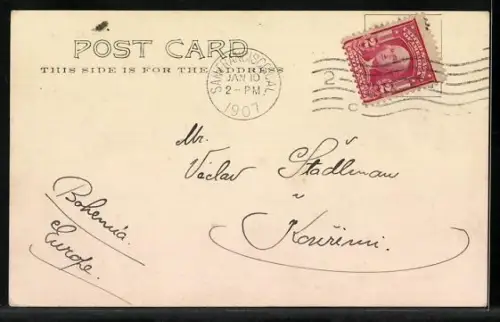 POST CARD
THIS SIDE IS FOR THE ADDRESS
SAN FRANCISCO, CAL.
JAN 10
2 - PM
1907
2
C
Mr.
Václav Stádleman
Bohemia
Europe.